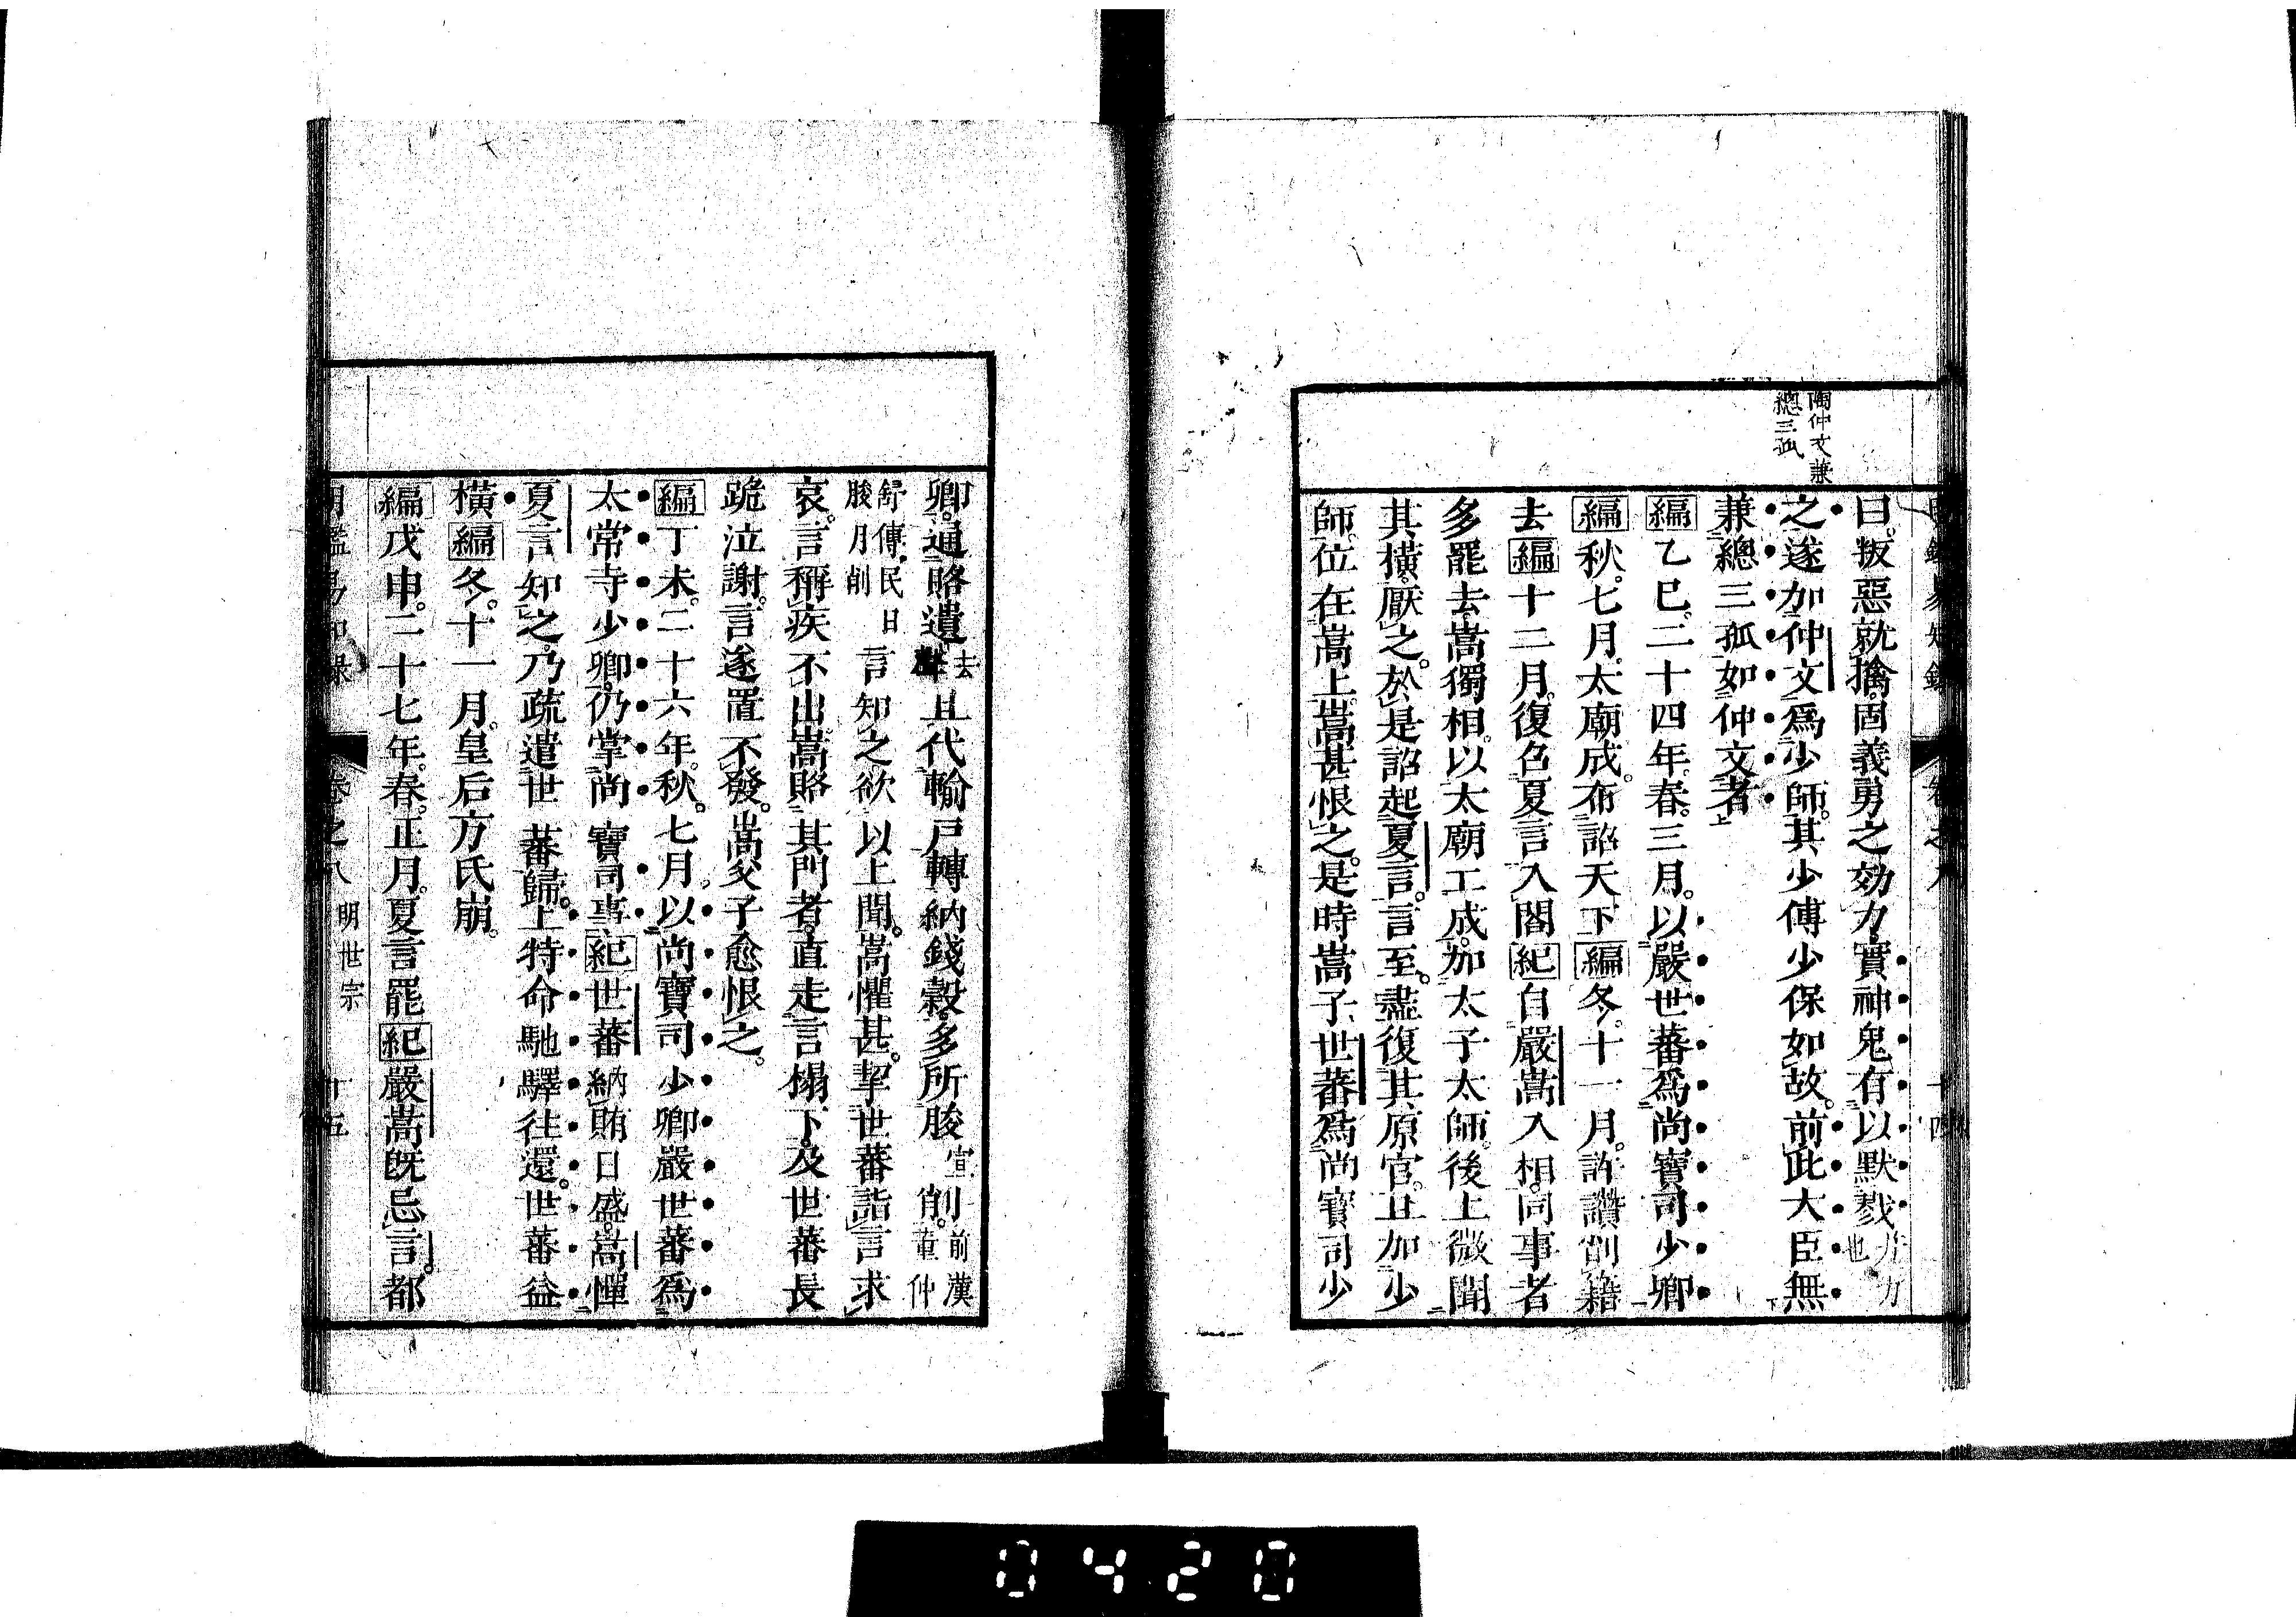 陶仲文兼
總三孤
曰。叛惡就擒。固義勇之効力。實神鬼有以默戮并力也
之遂加仲文爲少師。其少傅少保如故。前此大臣無
兼總三孤如仲文者
編乙巳。二十四年。春。三月。以嚴世蕃爲尚寶司少卿
編秋。七月。太廟成。布詔天下編冬。十一月。許讚削籍
去編十二月。復召夏言入閣紀自嚴嵩入相。同事者
多罷去。嵩獨相。以太廟工成。加太子太師。後上微聞
其橫。厭之。於是詔起夏言。言至。盡復其原官。且加少
師。位在嵩上。嵩甚恨之。是時嵩子世蕃爲尚寶司少
卿。通賂遺去聲且代輸戸轉納錢穀。多所朘宣削。前漢董仲
舒傳。民日朘月削言知之欲以上聞。嵩懼甚。挈世蕃詣言求
哀。言稱疾不出嵩賂其門者。直走言榻下。及世蕃長
跪泣謝。言遂置不發。嵩父子愈恨之。
編丁未。二十六年。秋。七月。以尚寶司少卿嚴世蕃爲
太常寺少卿。仍掌尚寶司事紀世蕃納賄日盛。嵩憚
夏言知之。乃疏遣世蕃歸。上特命馳驛往還。世蕃益
橫編冬。十一月。皇后方氏崩。
編戊申。二十七年。春。正月。夏言罷紀嚴嵩既忌言。都
明鑑易知録 卷之八 明世宗 十五